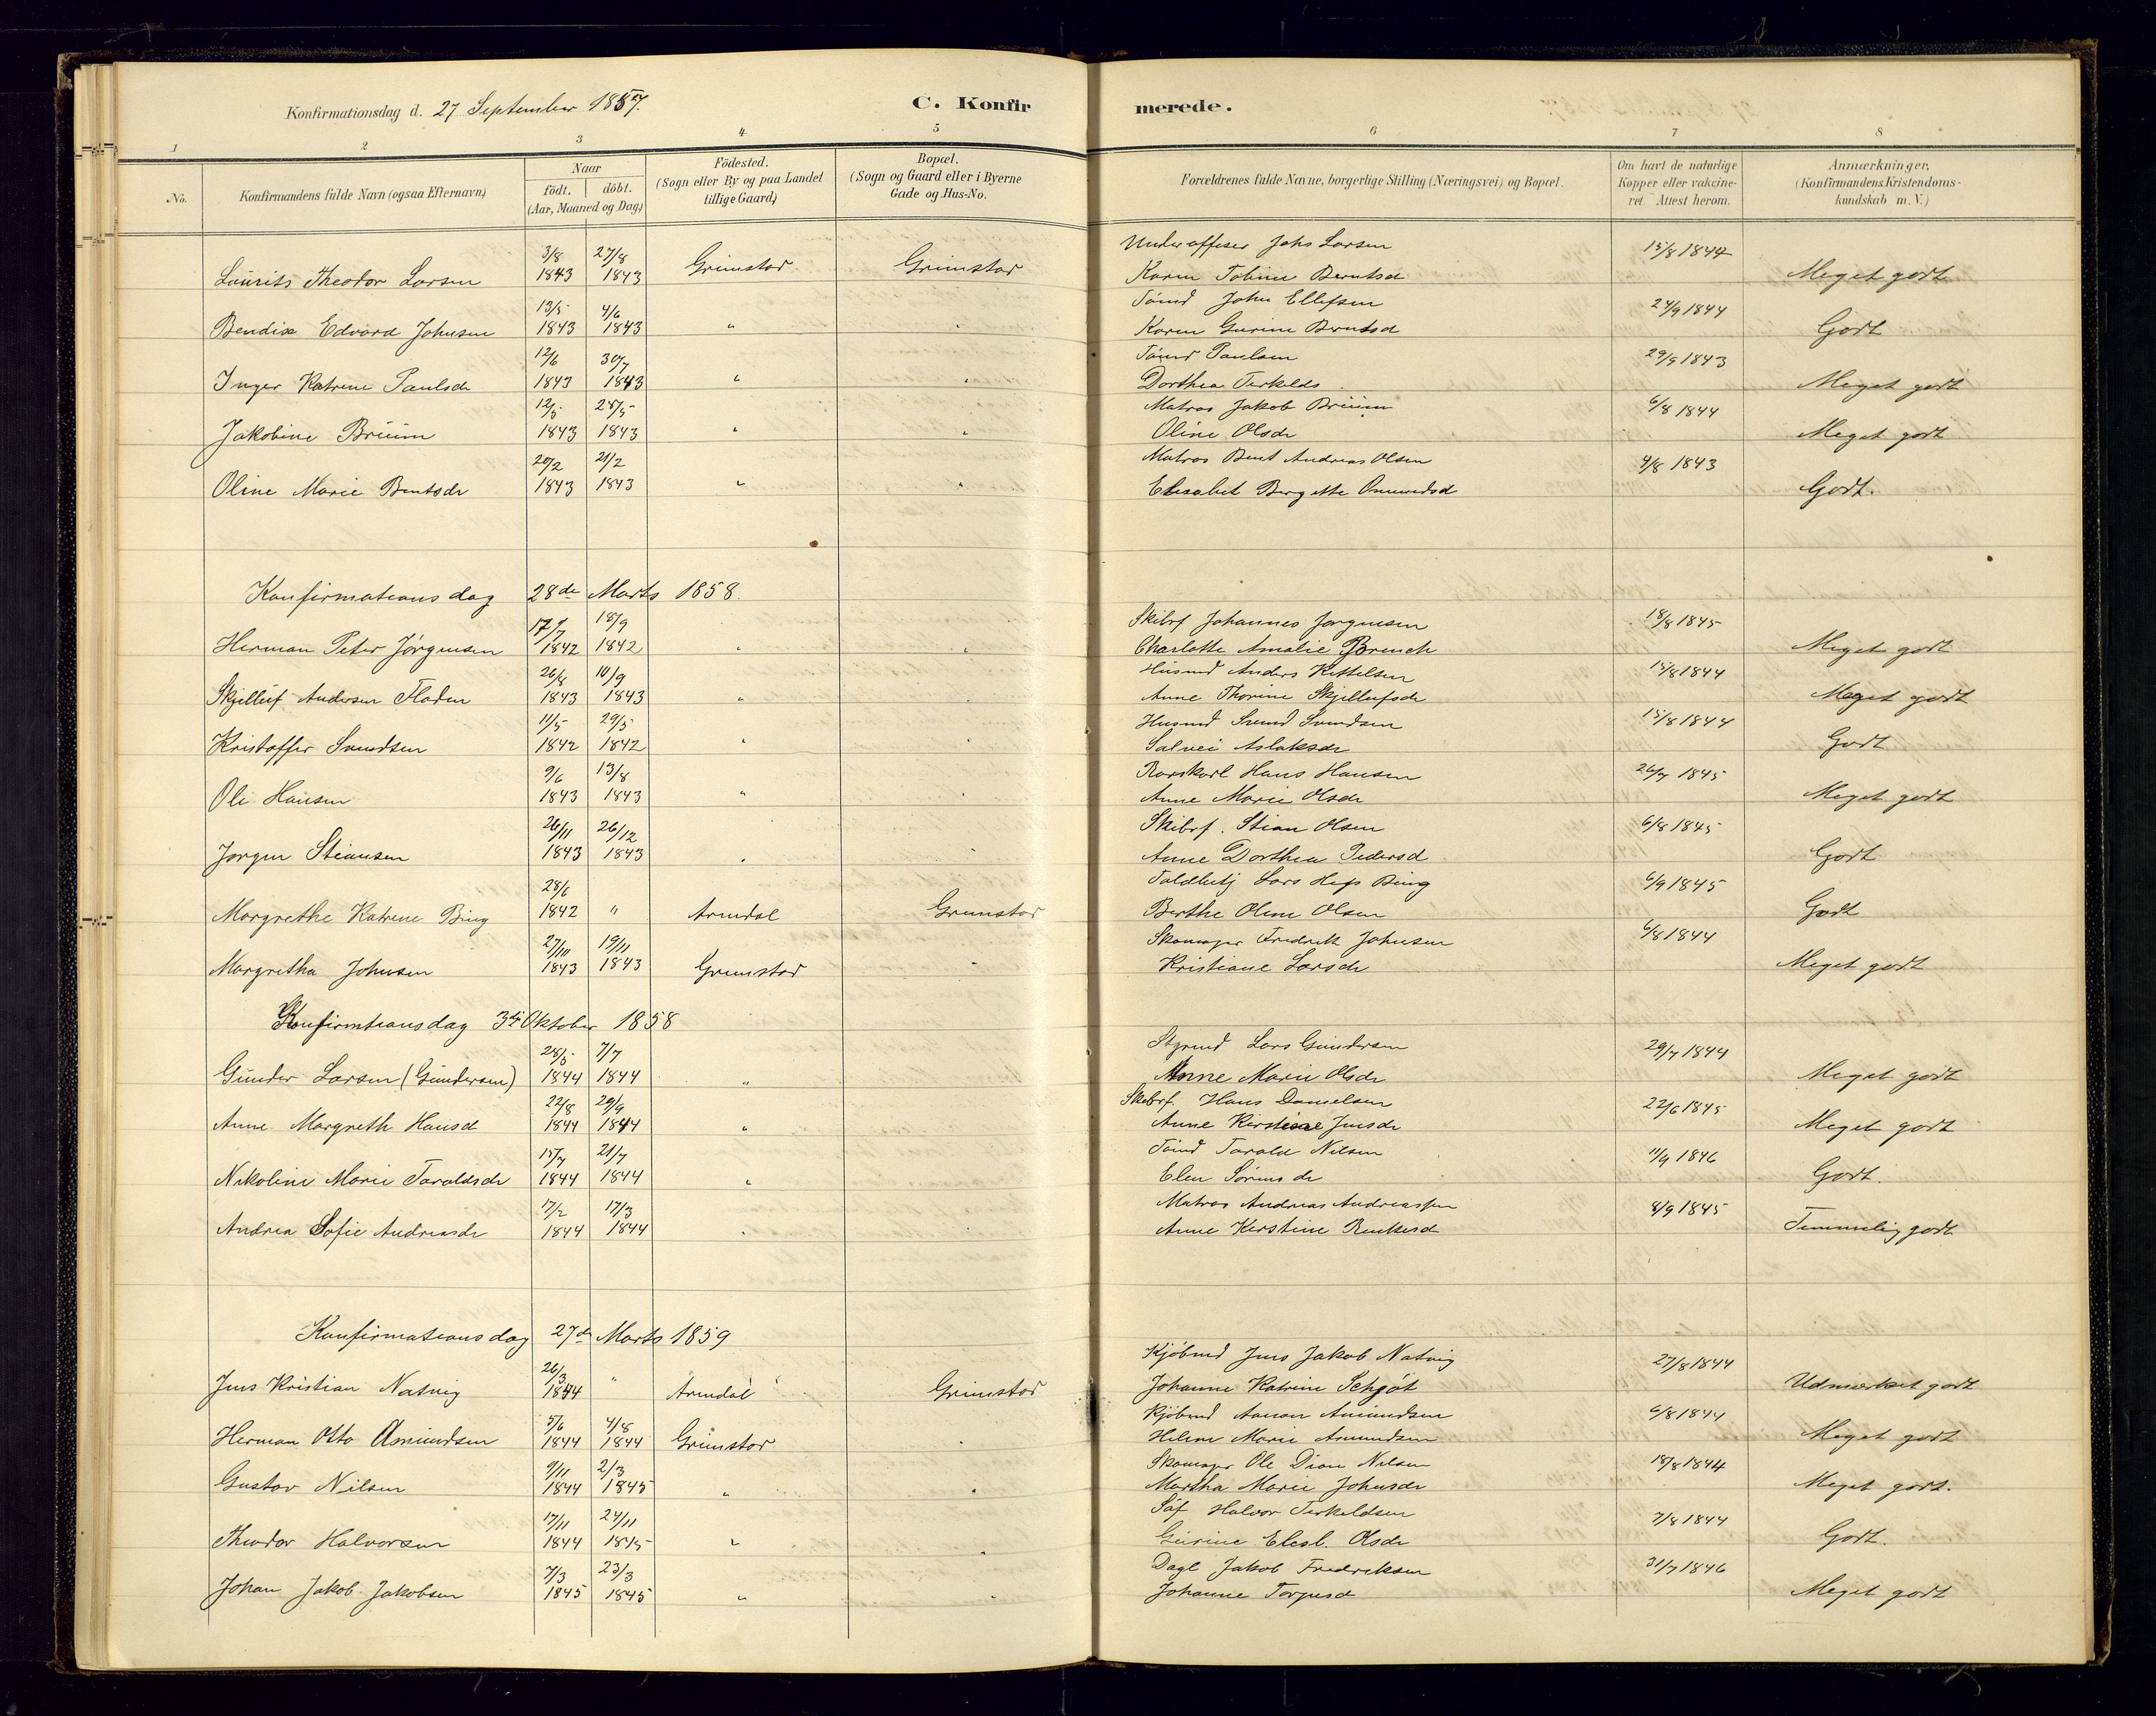 Konfirmationsdag d. 27 September 1857. C. Konfir merede.
1 2 3 4 5 6 7 8
No. Konfirmandens fulde Navn (ogsaa Efternavn) Naar födt. döbt. (Aar, Maaned og Dag) Födested. (Sogn eller By og paa Landet tillige Gaard) Bopæl. (Sogn og Gaard eller i Byerne Gade og Hus-No. Forældrenes fulde Navne, borgerlige Stilling (Næringsvei) og Bopæl. Om havt de naturlige Kopper eller vakcineret Attest herom. Anmærkninger, (Konfirmandens Kristendomskundskab m. V.)
3/8 27/8 Underofficer Johs Larsen 15/8 1844
Laurits Theodor Larsen 1843 1843 Grimstad Grimstad Karen Tobine Berntsd Meget godt
13/5 4/6 Tømd John Ellefsen 24/9 1844
Bendix Edvard Johnsen 1843 1843 " " Karen Gurine Berntsd Godt
12/6 30/7 Tømd Paulsen 29/9 1843
Inger Katrine Paulsdr 1843 1843 " " Dorthea Terkelds Meget godt
12/5 28/5 Matros Jakob Brüün 6/8 1844
Jakobine Brüün 1843 1843 " " Oline Olsdr Meget godt
20/2 21/2 Matros Bent Andreas Olsen 9/8 1843
Oline Marie Bentsdr 1843 1843 " " Elisabet Bergitte Omundsd Godt.
Konfirmationsdag 28de Marts 1858.
17/7 18/9 Skibsf Johannes Jørgensen 18/8 1845
Herman Peter Jörgensen 1842 1842 " " Charlotte Amalie Brench Meget godt
26/8 10/9 Husmd Anders Kittelsen 15/8 1844
Skjelluf Andersen Fladen 1843 1843 " Anne Thorine Skjellufsdr Meget godt
11/5 29/5 Husmd Svend Svendsen 15/8 1844
Kristoffer Svendsen 1842 1842 " " Salvei Aslaksdr Godt
9/6 13/8 Rorskarl Hans Hansen 26/7 1845
Ole Hansen 1843 1843 " " Anne Marie Olsdr Meget godt
26/11 26/12 Skibsf. Stian Olsen 6/8 1845
Jørgen Stiansen 1843 1843 " " Anne Dorthea Pedersd Godt
28/6 Toldbetj Lars Bing 6/9 1845
Margrethe Katrine Bing 1842 " Arendal Grimstad Berthe Oline Olsen Godt
27/10 19/11 Skomager Fredrik Johnsen 6/8 1844
Margretha Johnsen 1843 1843 Grimstad " Kristiane Larsdr Meget godt
Konfirmtionsdag 3die Oktober 1858
28/5 7/7 Styrmd Lars Gundersen 29/7 1844
Gunder Larsen (Gundersen) 1844 1844 " Anne Marie Olsdr Meget godt
22/8 29/9 Skibsf. Hans Danielsen 22/6 1845
Anne Margreth Hansd 1844 1844 " Anne Kirstine Jensdr Meget godt
15/7 21/7 Tömd Tarald Nilsen 11/9 1846
Nikoline Marie Taraldsdr 1844 1844 " Elen Sørensdr Godt.
17/2 17/3 Matros Andreas Andreassen 8/9 1845
Andrea Sofie Andreasdr 1844 1844 " Anne Kirstine Temmelig godt
Konfirmationsdag 27de Marts 1859
26/3 Kjöbmd Jens Jakob Natvig 27/8 1844
Jens Kristian Natvig 1844 " Arendal Grimstad Johanne Katrine Schjöt Udmærket godt
5/6 4/8 Kjöbmd Aanon Amundsen 6/8 1844
Herman Otto Amundsen 1844 1844 Grimstad " Helene Marie Amundsen Meget godt
9/11 2/3 Skomager Ole Dian Nilsen 18/8 1844
Gustav Nilsen 1844 1845 " " Martha Marie Johnsdr Meget godt.
17/11 24/11 Søf Halvor Terkeldsen 7/8 1844
Theodor Halvorsen 1844 1845 " " Gurine Elesb. Olsdr Godt.
7/3 23/3 Dagl Jakob Fredriksen 31/7 1846
Johan Jakob Jakobsen 1845 1845 " " Johanne Torjusd Meget godt